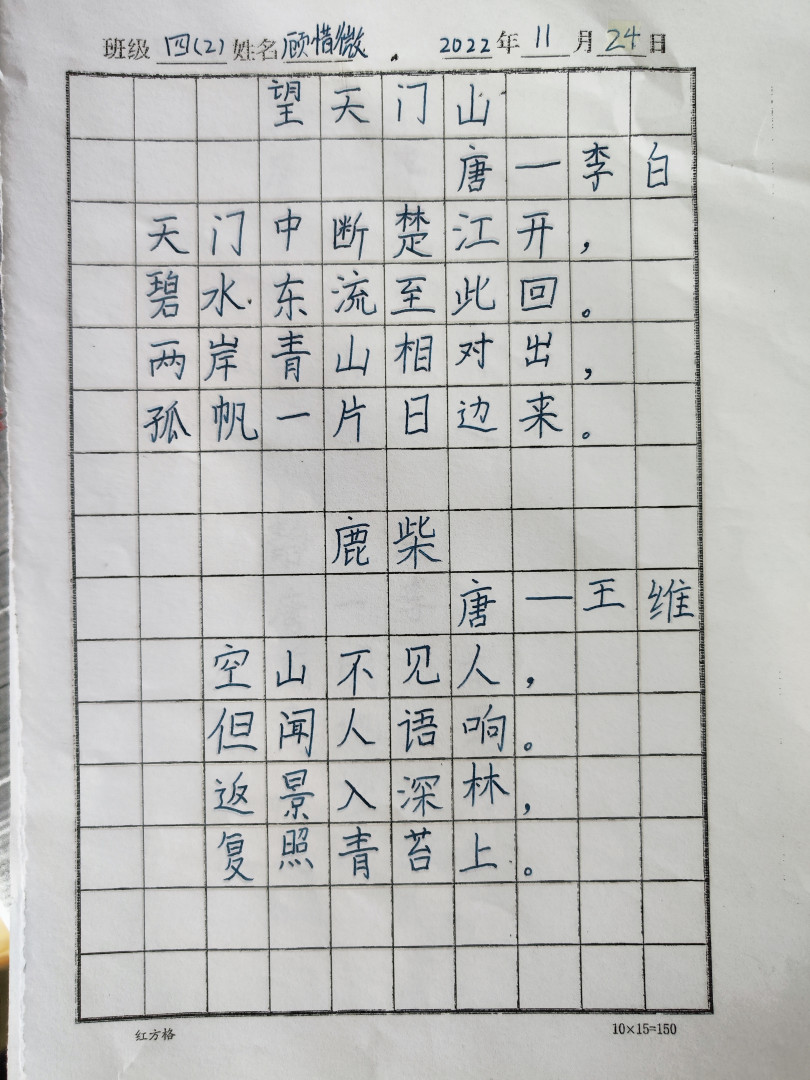 班级 四(2) 姓名 顾惜微 2022年 11 月 24 日
望天门山
唐一李白
天门中断楚江开，
碧水东流至此回。
两岸青山相对出，
孤帆一片日边来。
鹿柴
唐一王维
空山不见人，
但闻人语响。
返景入深林，
复照青苔上。
红方格 10×15=150